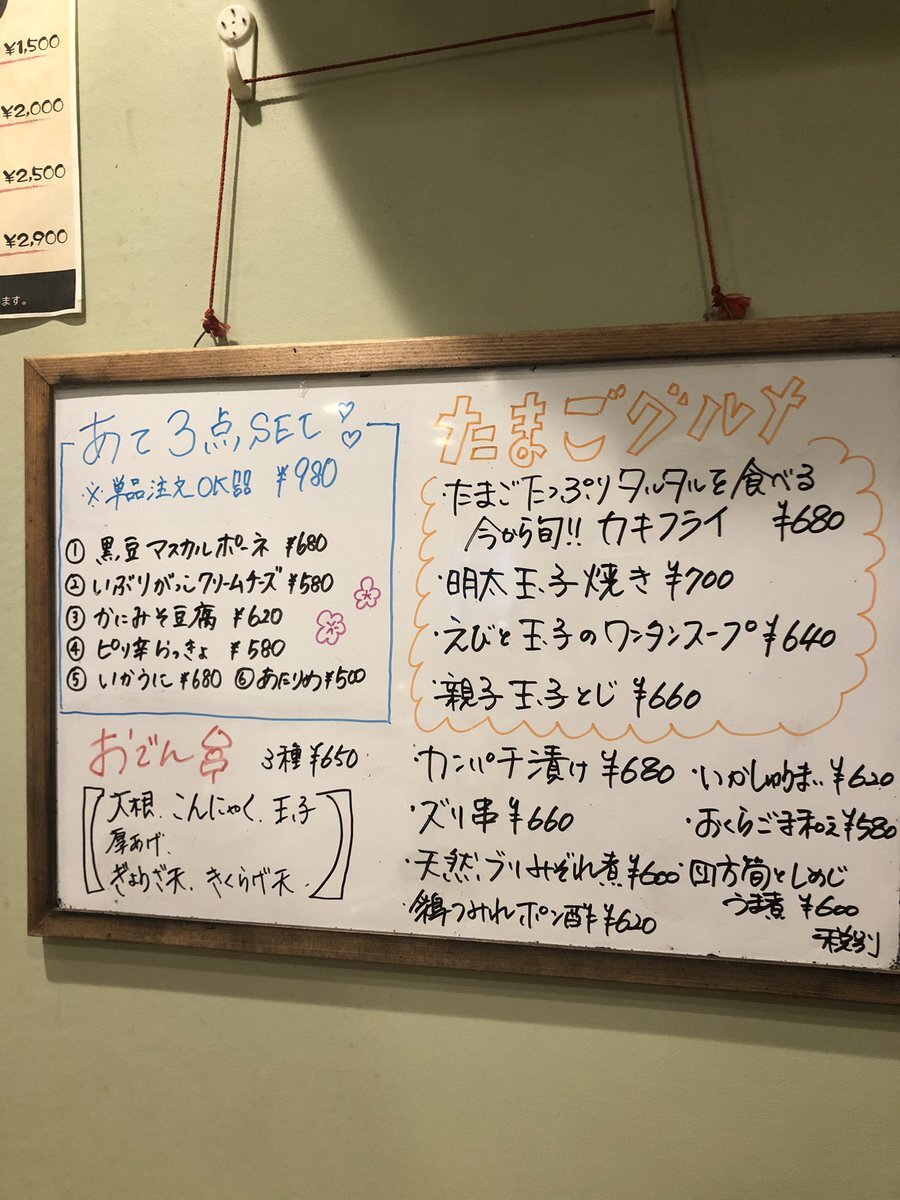 ¥1,500
¥2,000
¥2,500
¥2,900
ます。
あて3点SET
※単品注文OK ¥980
① 黒豆マスカルポーネ ¥680
② いぶりがっこクリームチーズ ¥580
③ かにみそ豆腐 ¥620
④ ピリ辛らっきょ ¥580
⑤ いかうに ¥680 ⑥ あたりめ ¥500
おでん 3種 ¥650
大根、こんにゃく、玉子
厚あげ、
ぎょうざ天、きくらげ天、
たまごグルメ
・たまごたっぷりタルタルを食べる
今から旬!! カキフライ ¥680
・明太玉子焼き ¥700
・えびと玉子のワンタンスープ ¥640
・親子玉子とじ ¥660
・カンパチ漬け ¥680
・ズリ串 ¥660
・天然ブリみぞれ煮 ¥600
・鶏つみれポン酢 ¥620
・いかしゅうまい ¥620
・おくらごま和え ¥580
・四方筍としめじ
うま煮 ¥600
税別